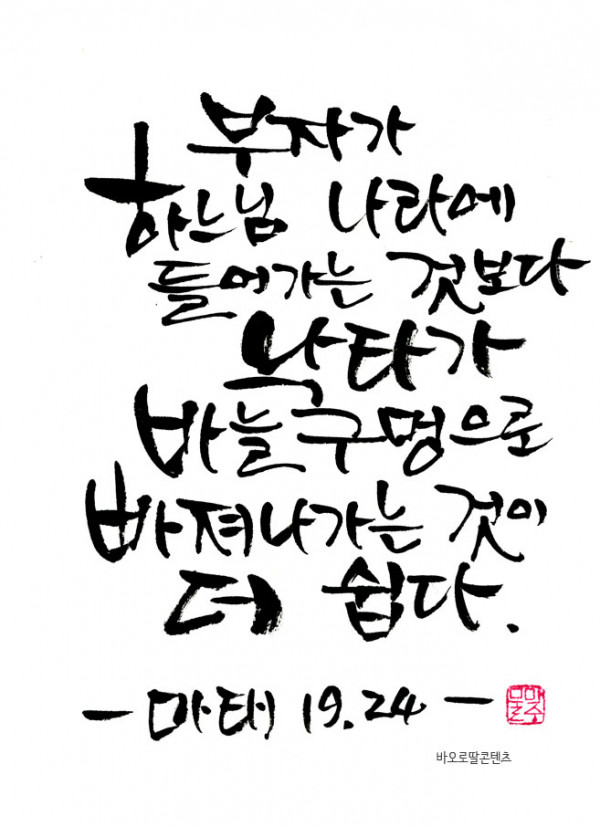 부자가
하느님 나라에
들어가는 것보다
낙타가
바늘구멍으로
빠져나가는 것이
더 쉽다.
- 마태 19.24 -
바오로딸콘텐츠